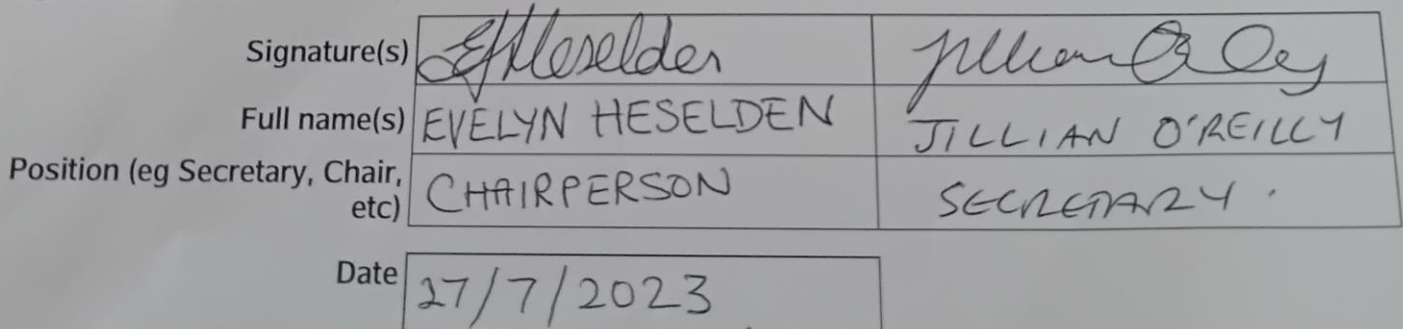 Signature(s) EHeselden Jillian O'Reilly
Full name(s) EVELYN HESELDEN JILLIAN O'REILLY
Position (eg Secretary, Chair, etc) CHAIRPERSON SECRETARY.
Date 27/7/2023